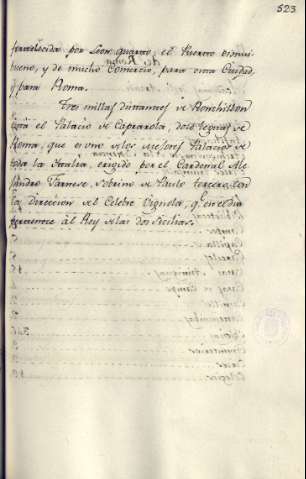 523
fortalecida por Leon quarto, el Puerto es mui
bueno, y de mucho Comercio, para esta Ciudad,
y para Roma.
Tres millas distante de Ronciglion
está el Palacio de Caprarola, dose leguas de
Roma, que es uno de los mejores Palacios de
toda la Italia, erigido por el Cardenal Ale
sandro Farnese, sobrino de Paulo tercero, con
la direccion del Celebre Vignola, q.e en el dia
pertenece al Rey de las dos Sicilias.